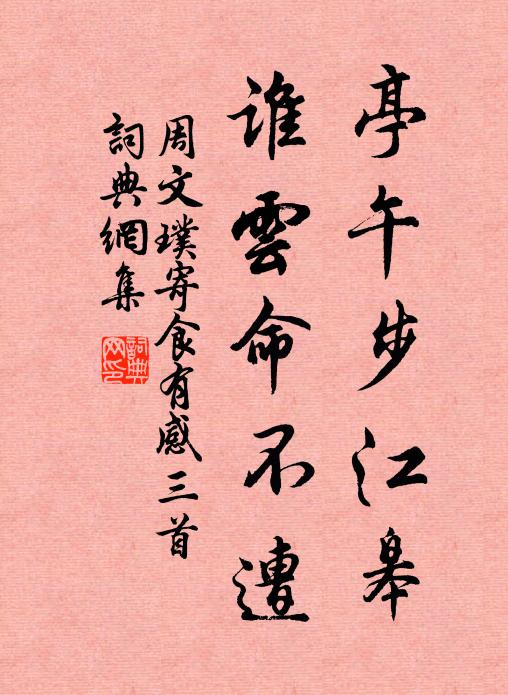 亭午步江皋
誰雲命不遭
周文璞寄食有感三首
詞典網集
詞典網印